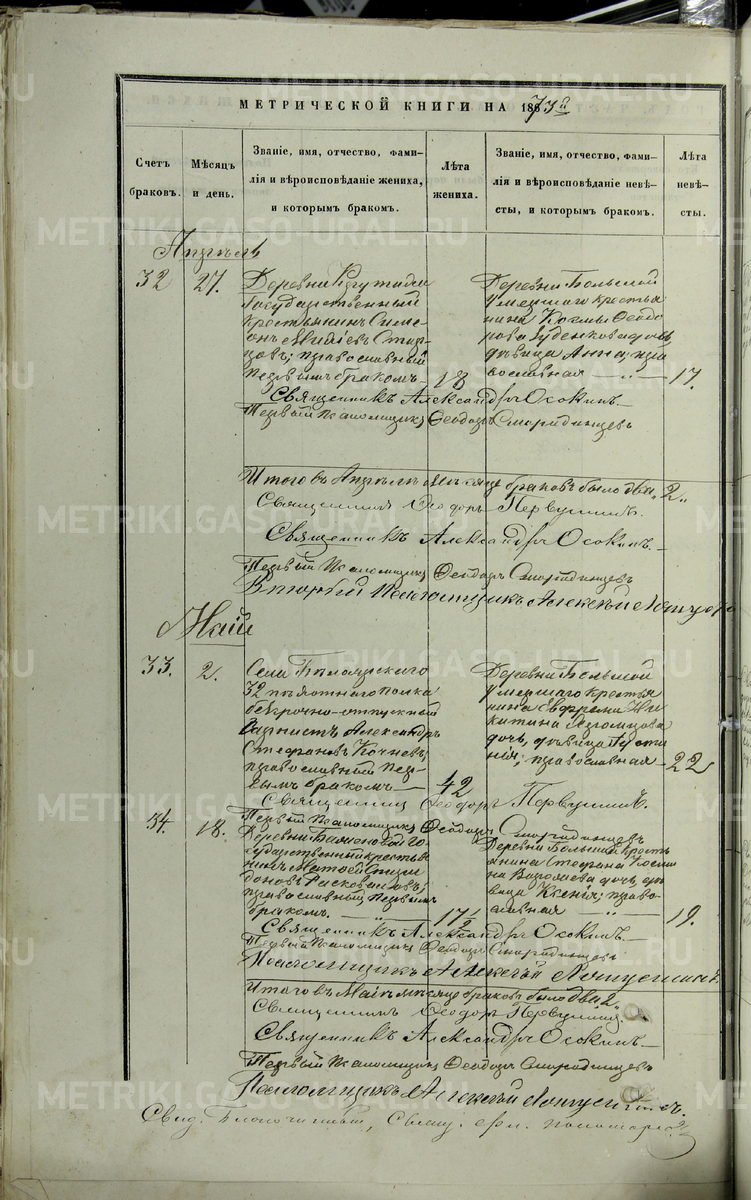 МЕТРИЧЕСКОЙ КНИГИ НА 1873й
Счетъ браковъ.
Мѣсяцъ и день.
Званіе, имя, отчество, фами-
лія и вѣроисповѣданіе жениха,
и которымъ бракомъ.
Лѣта жениха.
Званіе, имя, отчество, фами-
лія и вѣроисповѣданіе невѣ-
сты, и которымъ бракомъ.
Лѣта невѣ-
сты.
Апрѣль
32 27.
Деревни
Государственный
крестьянинъ Симе-
онъ Стар-
цовъ; православный
первымъ бракомъ 18
Деревни Большой
крестья
нина Козмы Ѳеодо-
рова дочь
дѣвица Анна; пра
вославная 17.
Священникъ Александръ Осокинъ.
Первый Псаломщикъ Ѳеодоръ Смородинцевъ
Итого въ Апрѣлѣ мѣсяцѣ браковъ было два "2"
Священникъ Ѳеодоръ Первушинъ.
Священникъ Александръ Осокинъ.
Первый Псаломщикъ Ѳеодоръ Смородинцевъ
Второй Псаломщикъ Алексѣй
Май
33. 2.
Села Бѣлоярскаго
32 пѣхотнаго полка
безсрочно-отпускный
Александръ
Стефановъ Кочневъ;
православный пер-
вымъ бракомъ 42
Деревни Большой
крестья
нина Ни
китина
дочь, дѣвица Іусти
нія; православная 22
Священникъ Ѳеодоръ Первушинъ.
Первый Псаломщикъ Ѳеодоръ Смородинцевъ
34. 18.
Деревни Го
сударственный крестья
нинъ Матѳей Спири
доновъ
православный, первымъ
бракомъ. 17½
Деревни Большой кресть
янина Стефана
дочь, дѣ
вица Ксенія; право
славная 19.
Священникъ Александръ Осокинъ.
Первый Псаломщикъ Ѳеодоръ Смородинцевъ
Псаломщикъ Алексѣй
Итого въ Маѣ мѣсяцѣ браковъ было два 2"
Священникъ Ѳеодоръ Первушинъ.
Священникъ Александръ Осокинъ
Первый Псаломщикъ Ѳеодоръ Смородинцевъ
Псаломщикъ Алексѣй
METRIKI.GASO-URAL.RU